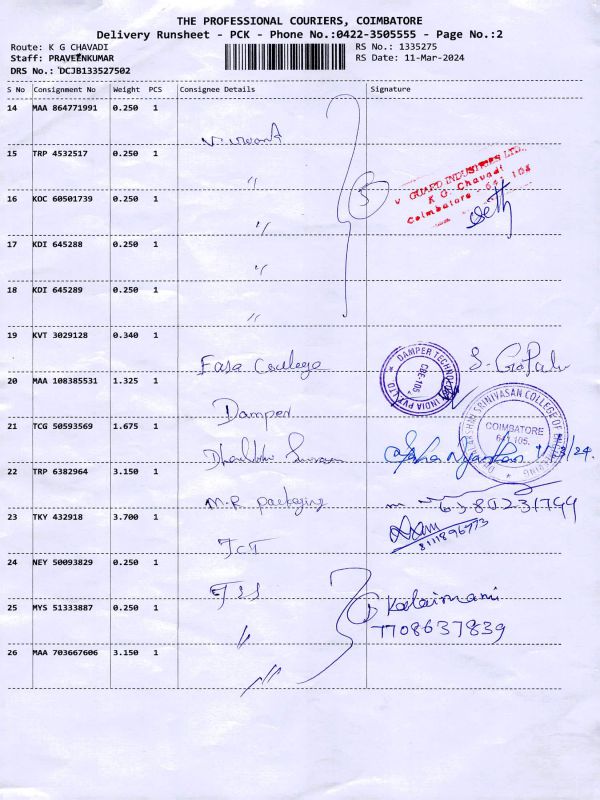 THE PROFESSIONAL COURIERS, COIMBATORE
Delivery Runsheet - PCK - Phone No.:0422-3505555 - Page No.:2
Route: K G CHAVADI
RS No.: 1335275
Staff: PRAVEENKUMAR
RS Date: 11-Mar-2024
DRS No.: DCJB133527502
S No Consignment No Weight PCS Consignee Details Signature
14 MAA 864771991 0.250 1
15 TRP 4532517 0.250 1
〃
V GUARD INDUSTRIES LTD.,
K G. Chavadi
Coimbatore - 641 105
5
16 KOC 60501739 0.250 1
〃
17 KDI 645288 0.250 1
〃
18 KDI 645289 0.250 1
〃
19 KVT 3029128 0.340 1
DAMPER TECHNOLOGY INDIA PVT. LTD
CBE-105.
S. Gopal
20 MAA 108385531 1.325 1
Damper
21 TCG 50593569 1.675 1
DHANALAKSHMI SRINIVASAN COLLEGE OF ENGINEERING
COIMBATORE
641 105.
22 TRP 6382964 3.150 1
M.R packaging
6380231744
23 TKY 432918 3.700 1
8111896773
24 NEY 50093829 0.250 1
Kalaimani
25 MYS 51333887 0.250 1
〃
7708637839
26 MAA 703667606 3.150 1
〃